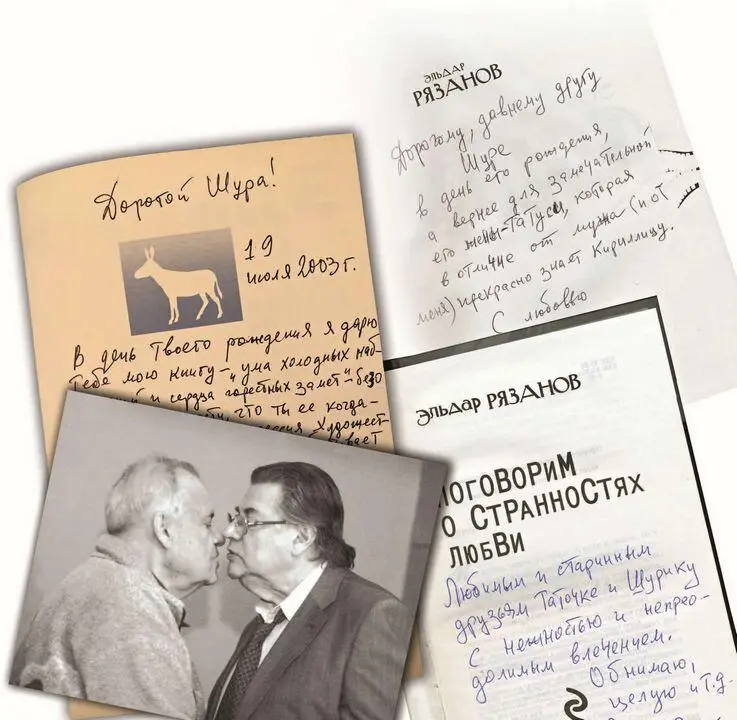 Дорогой Шура!
19
июля 2003 г.
В день Твоего рождения я дарю
Тебе мою книгу - "ума холодных наб-
и сердца горестных замет" - безо
что ты ее когда-
Художест-
ЭЛЬДАР
РЯЗАНОВ
Дорогому, давнему другу
Шуре
в день его рождения,
а вернее для замечательной
его жены - Татуси, которая
в отличие от мужа (и от
меня) прекрасно знает Кириллицу.
С любовью
ЭЛЬДАР РЯЗАНОВ
ПОГОВОРИМ
О СТРАННОСТЯХ
ЛЮБВИ
Любимым и старинным
друзьям Таточке и Шурику
с нежностью и непрео-
долимым влечением.
Обнимаю,
целую и т.д.